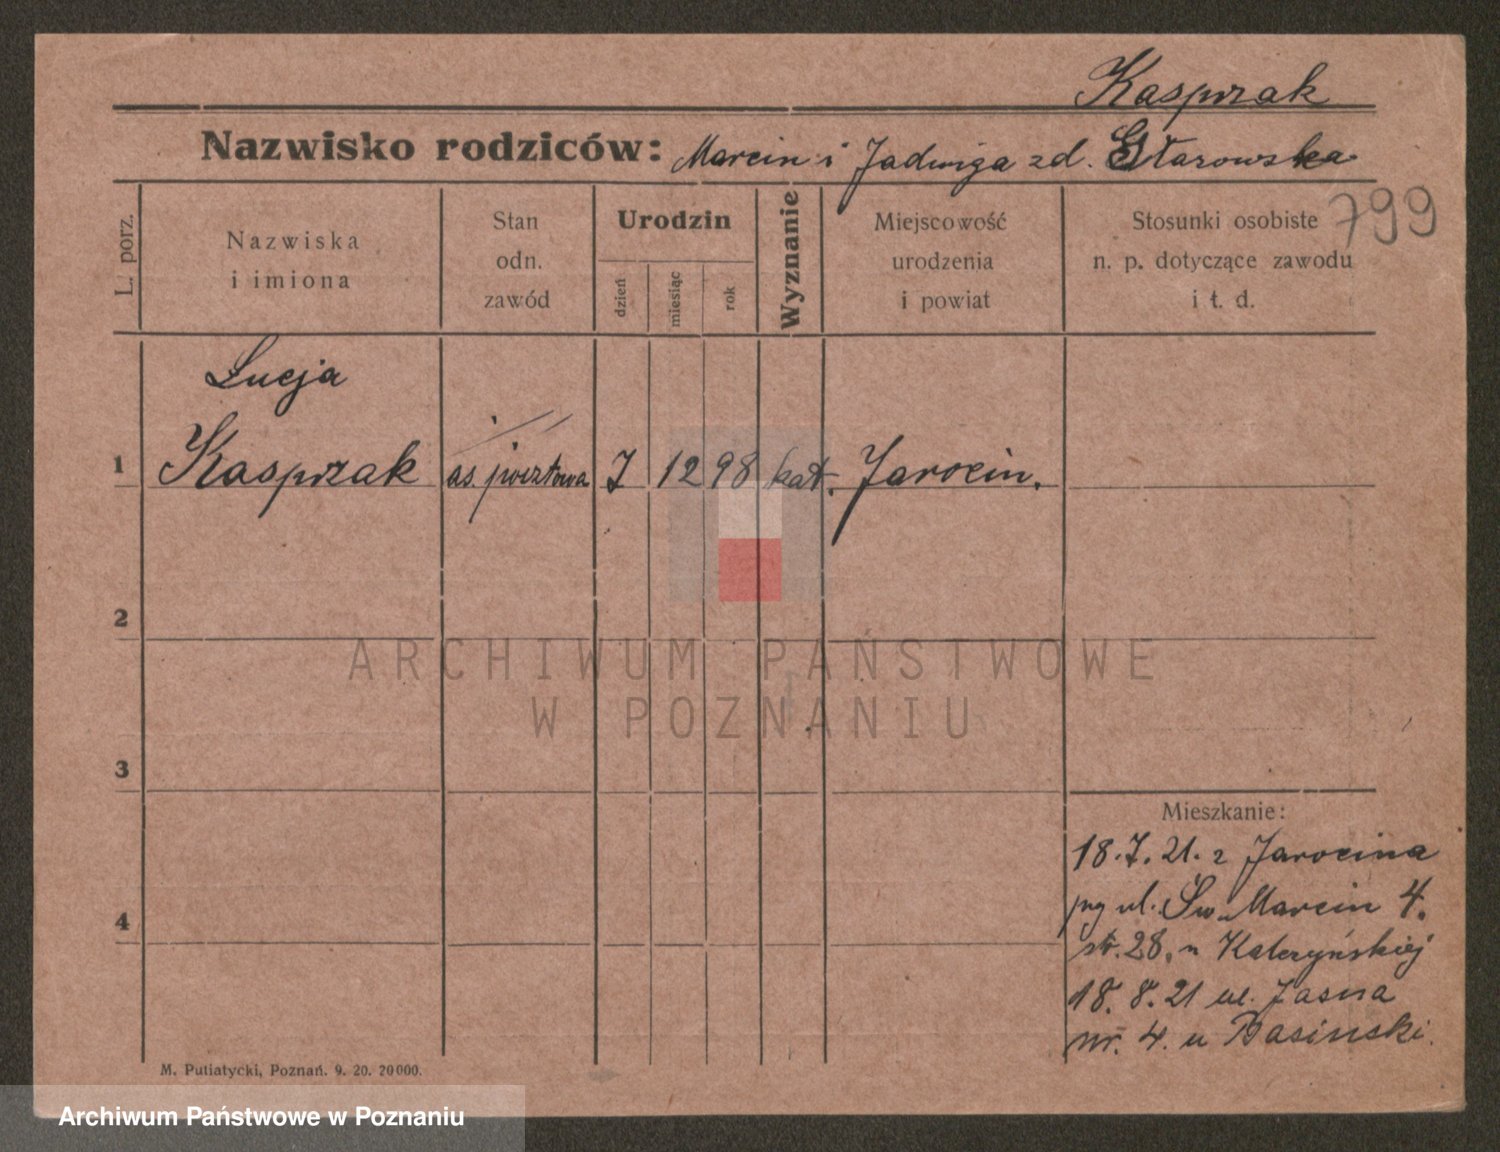 Kasprzak
Nazwisko rodziców: Marcin i Jadwiga zd. Starowska
799
L. porz.
Nazwiska
i imiona
Stan
odn.
zawód
Urodzin
dzień
miesiąc
rok
Wyznanie
Miejscowość
urodzenia
i powiat
Stosunki osobiste
n. p. dotyczące zawodu
i t. d.
Łucja
1 Kasprzak as. pocztowa 7 12 98 kat. Jarocin.
2
ARCHIWUM PAŃSTWOWE
W POZNANIU
3
Mieszkanie:
18.7.21. z Jarocina
ul. Św. Marcin 4.
4
str. 28.
18.8.21 ul. Jasna
nr. 4. u Basinski.
M. Putiatycki, Poznań. 9. 20. 20000.
Archiwum Państwowe w Poznaniu